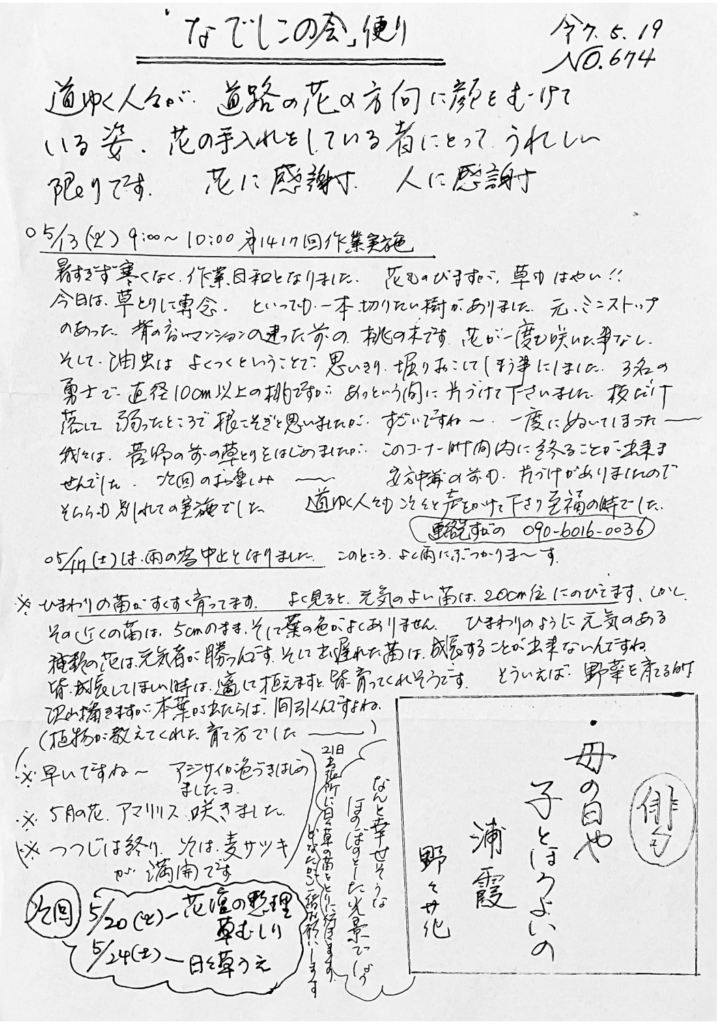 「なでしこの会」便り
令7.5.19
NO.674
道ゆく人々が、道路の花の方向に顔をむけて
いる姿、花の手入れをしている者にとって、うれしい
限りです。 花に感謝す 人に感謝す
○5/13(火) 9:00〜10:00 第1417回作業実施
暑すぎず寒くなく、作業日和となりました。 花ものびますが、草もはやい!!
今日は、草とりに専念。 といっても、一本切りたい樹がありました。元、ミニストップ
のあった、背の高いマンションの建った前の、桃の木です。花が一度も咲いた事なし、
そして、油虫は よくつくということで、思いきり、堀りおこしてしまう事にしました。 3名の
勇士で、直径10cm以上の桃ですが、あっという間に片づけて下さいました。枝だけ
落して、弱ったところで根こそぎと思いましたが、すごいですね〜、一度にぬいてしまった〜
我々は、菅野の前の草とりをはじめましたが、このコーナー時間内に終ることが出来ま
せんでした。 次回のお楽しみ〜 の前も、片づけがありましたので
そちらも別れての実施でした。 道ゆく人々もつぎつぎと声をかけて下さり至福の時でした。
連絡すがの 090-6016-0036
○5/17(土)は、雨の為中止となりました。 このところ、よく雨にぶつかりま〜す。
※ ひまわりの苗がすくすく育ってます。 よく見ると、元気のよい苗は、20cm位にのびてます、しかし、
その近くの苗は、5cmのまま、そして葉の色がよくありません。 ひまわりのように元気のある
種類の花は、元気者が勝つんです。そして出遅れた苗は、成長することが出来ないんですね
皆、成長してほしい時は、適して植えますと、皆育ってくれそうです。 そういえば、野菜を育てる時
沢山播きますが、本葉が出たらは、間引くんですよね。
(植物が教えてくれた、育て方でした〜)
※ 早いですね〜 アジサイが色づきはじめ
ましたヨ
※ 5月の花、アマリリス、咲きました。
※ つつじは終り、そは、麦サツキ
が満開です
21日
に日々草の苗をとりに行きます。
どなたかご一緒お願いします
なんと幸せそうな
ほのぼのとした光景でしょう
次回
5/20(火)ー花壇の整理
草むしり
5/24(土)ー日々草うえ
俳句
・母の日や
子とほろよいの
浦霞
野々花